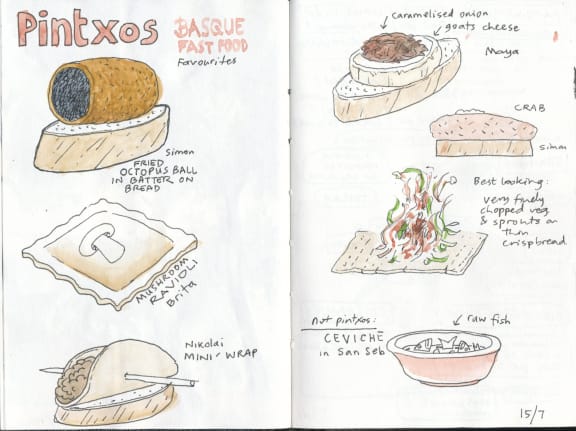 Pintxos
BASQUE
FAST FOOD
Favourites
Simon
FRIED
OCTOPUS BALL
IN BATTER ON
BREAD
MUSHROOM
RAVIOLI
Brita
Nikolai
MINI-WRAP
caramelised onion
goats cheese
Maya
CRAB
Simon
Best looking:
very finely
chopped veg
& sprouts on
thin
crispbread
not pintxos:
CEVICHE
in San Seb
raw fish
15/7